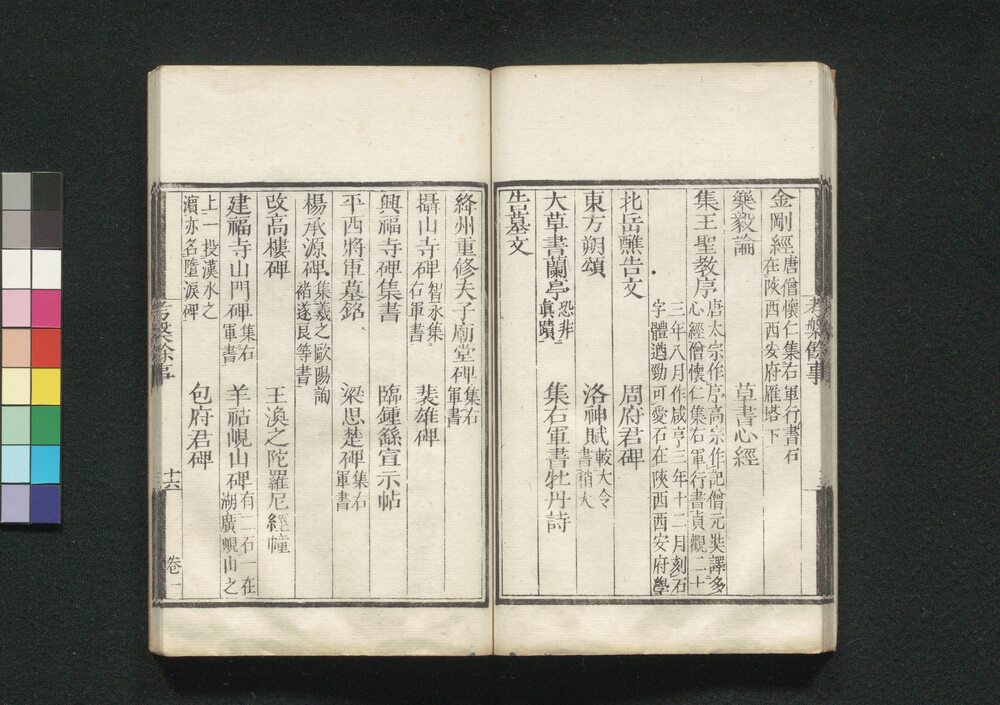 金剛經唐僧懷仁集右軍行書石
在陝西西安府雁塔下
樂毅論 草書心經
集王聖教序唐太宗作序高宗作記僧元奘譯多
心經僧懷仁集右軍行書貞觀二十
三年八月作咸亨三年十二月刻石
字體遒勁可愛石在陝西西安府學
北岳醮告文 周府君碑
東方朔頌 洛神賦較大令
書稍大
大草書蘭亭恐非
眞蹟 集右軍書牡丹詩
告墓文
絳州重修夫子廟堂碑集右
軍書
攝山寺碑智永集
右軍書 裴雄碑
興福寺碑集書 臨鍾繇宣示帖
平西將軍墓銘 梁思楚碑集右
軍書
楊承源碑集羲之歐陽詢
褚遂良等書
改高樓碑 王渙之陀羅尼經幢
建福寺山門碑集右
軍書 羊祜峴山碑有二石一在
湖廣峴山之
上一投漢水之
濵亦名墮淚碑 包府君碑
考槃餘事
考槃餘事
十六
卷一